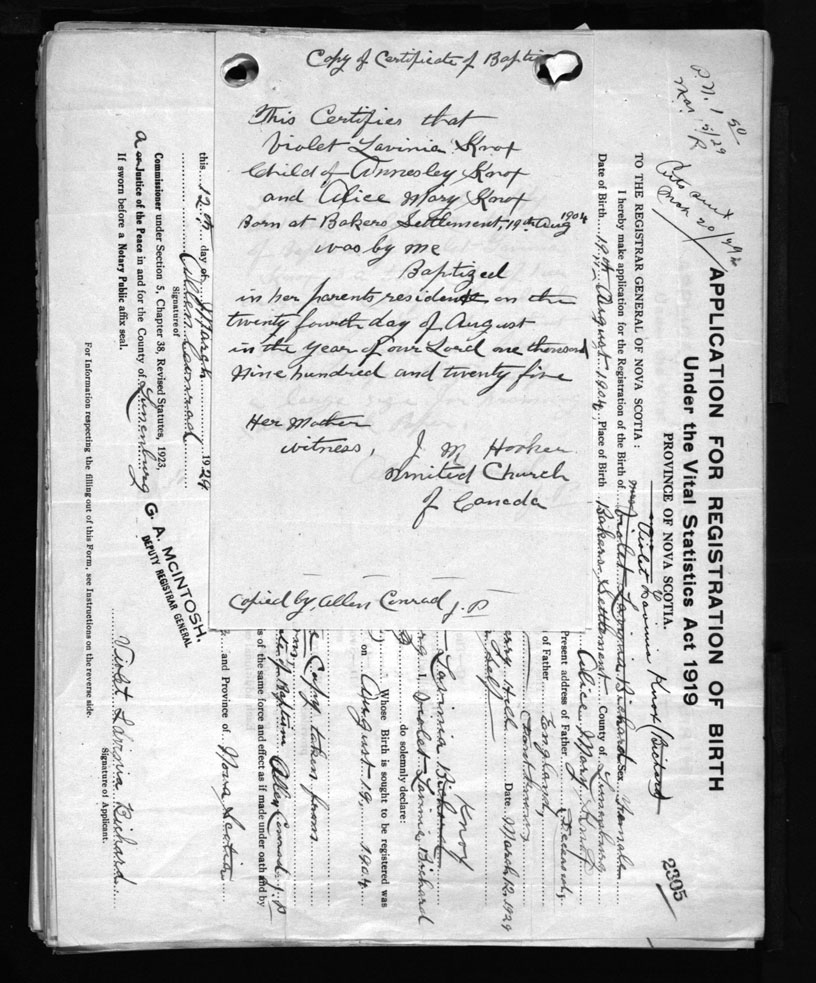 Copy of Certificate of Bapti
This Certifies that
Violet Lavinia Knox
Child of Annesley Knox
and Alice Mary Knox
Born at Bakers Settlement, 19th Aug 1904
was by me
Baptized
in her parents residence on the
twenty fourth day of August
in the year of our Lord one thousand
nine hundred and twenty five
Her Mother
witness, J. M Hooker
United Church
of Canada
Copied by, Allen Conrad J. P
P. N. 1 50
Mar 15/29
R
Mar 20/29
2305
APPLICATION FOR REGISTRATION OF BIRTH
Under the Vital Statistics Act 1919
PROVINCE OF NOVA SCOTIA.
Violet Lavinia Knox (Richard
TO THE REGISTRAR GENERAL OF NOVA SCOTIA:
I hereby make application for the Registration of the Birth of Mrs Violet Lavinia Richard Sex Female
Date of Birth 19th August 1904 Place of Birth Bakers Settlement County of Lunenburg
Alice Mary Knox
Present address of Father Deceased
of Father England,
Date March 12, 1929
Self
Knox
Lavinia Richard
I, Violet Lavinia Richard
do solemnly declare:
Whose Birth is sought to be registered was
on August 19, 1904
Copy taken from
of Baptism Allen Conrad J. P
of the same force and effect as if made under oath and by
and Province of Nova Scotia
this 12th day of March 1929
Allen Conrad
Signature of
Commissioner under Section 5, Chapter 38, Revised Statutes, 1923,
a or Justice of the Peace in and for the County of Lunenburg
If sworn before a Notary Public affix seal.
G. A. MCINTOSH,
DEPUTY REGISTRAR GENERAL
Violet Lavinia Richard
Signature of Applicant.
For Information respecting the filling out of this Form, see Instructions on the reverse side.